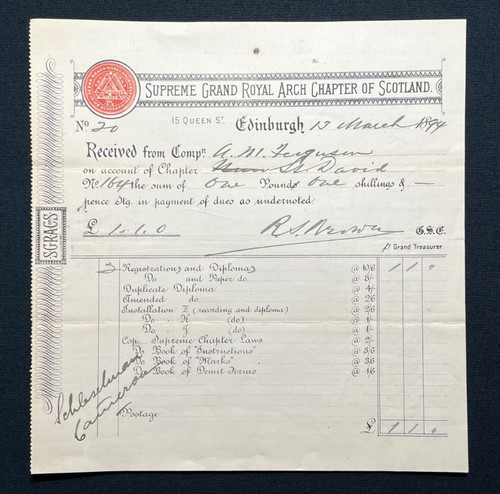 SUPREME GRAND ROYAL ARCH CHAPTER OF SCOTLAND.
15 QUEEN ST.
No. 20 Edinburgh 13 March 1894
Received from Compn. A. M. Ferguson
on account of Chapter St David
No 164 the sum of One Pounds One shillings & —
pence Stg in payment of dues as undernoted
£ 1 : 1 . 0 R. S. Brown G.S.E.
p Grand Treasurer
SGRACS
2 Registrations and Diplomas @ 10/6 1 1 0
Do and Paper do @ 8/-
Duplicate Diploma @ 4/
Amended do. @ 2/6
Installation Z (recording and diploma) @ 2/6
Do. H (do) @ 1/-
Do. J (do) @ 1/-
Cop Supreme Chapter Laws @ 2/-
Do Book of "Instructions" @ 3/6
Do Book of "Marks" @ 3/6
Do Book of Demit Forms @ 4/6
Postage
£ 1 1 0
Cameron